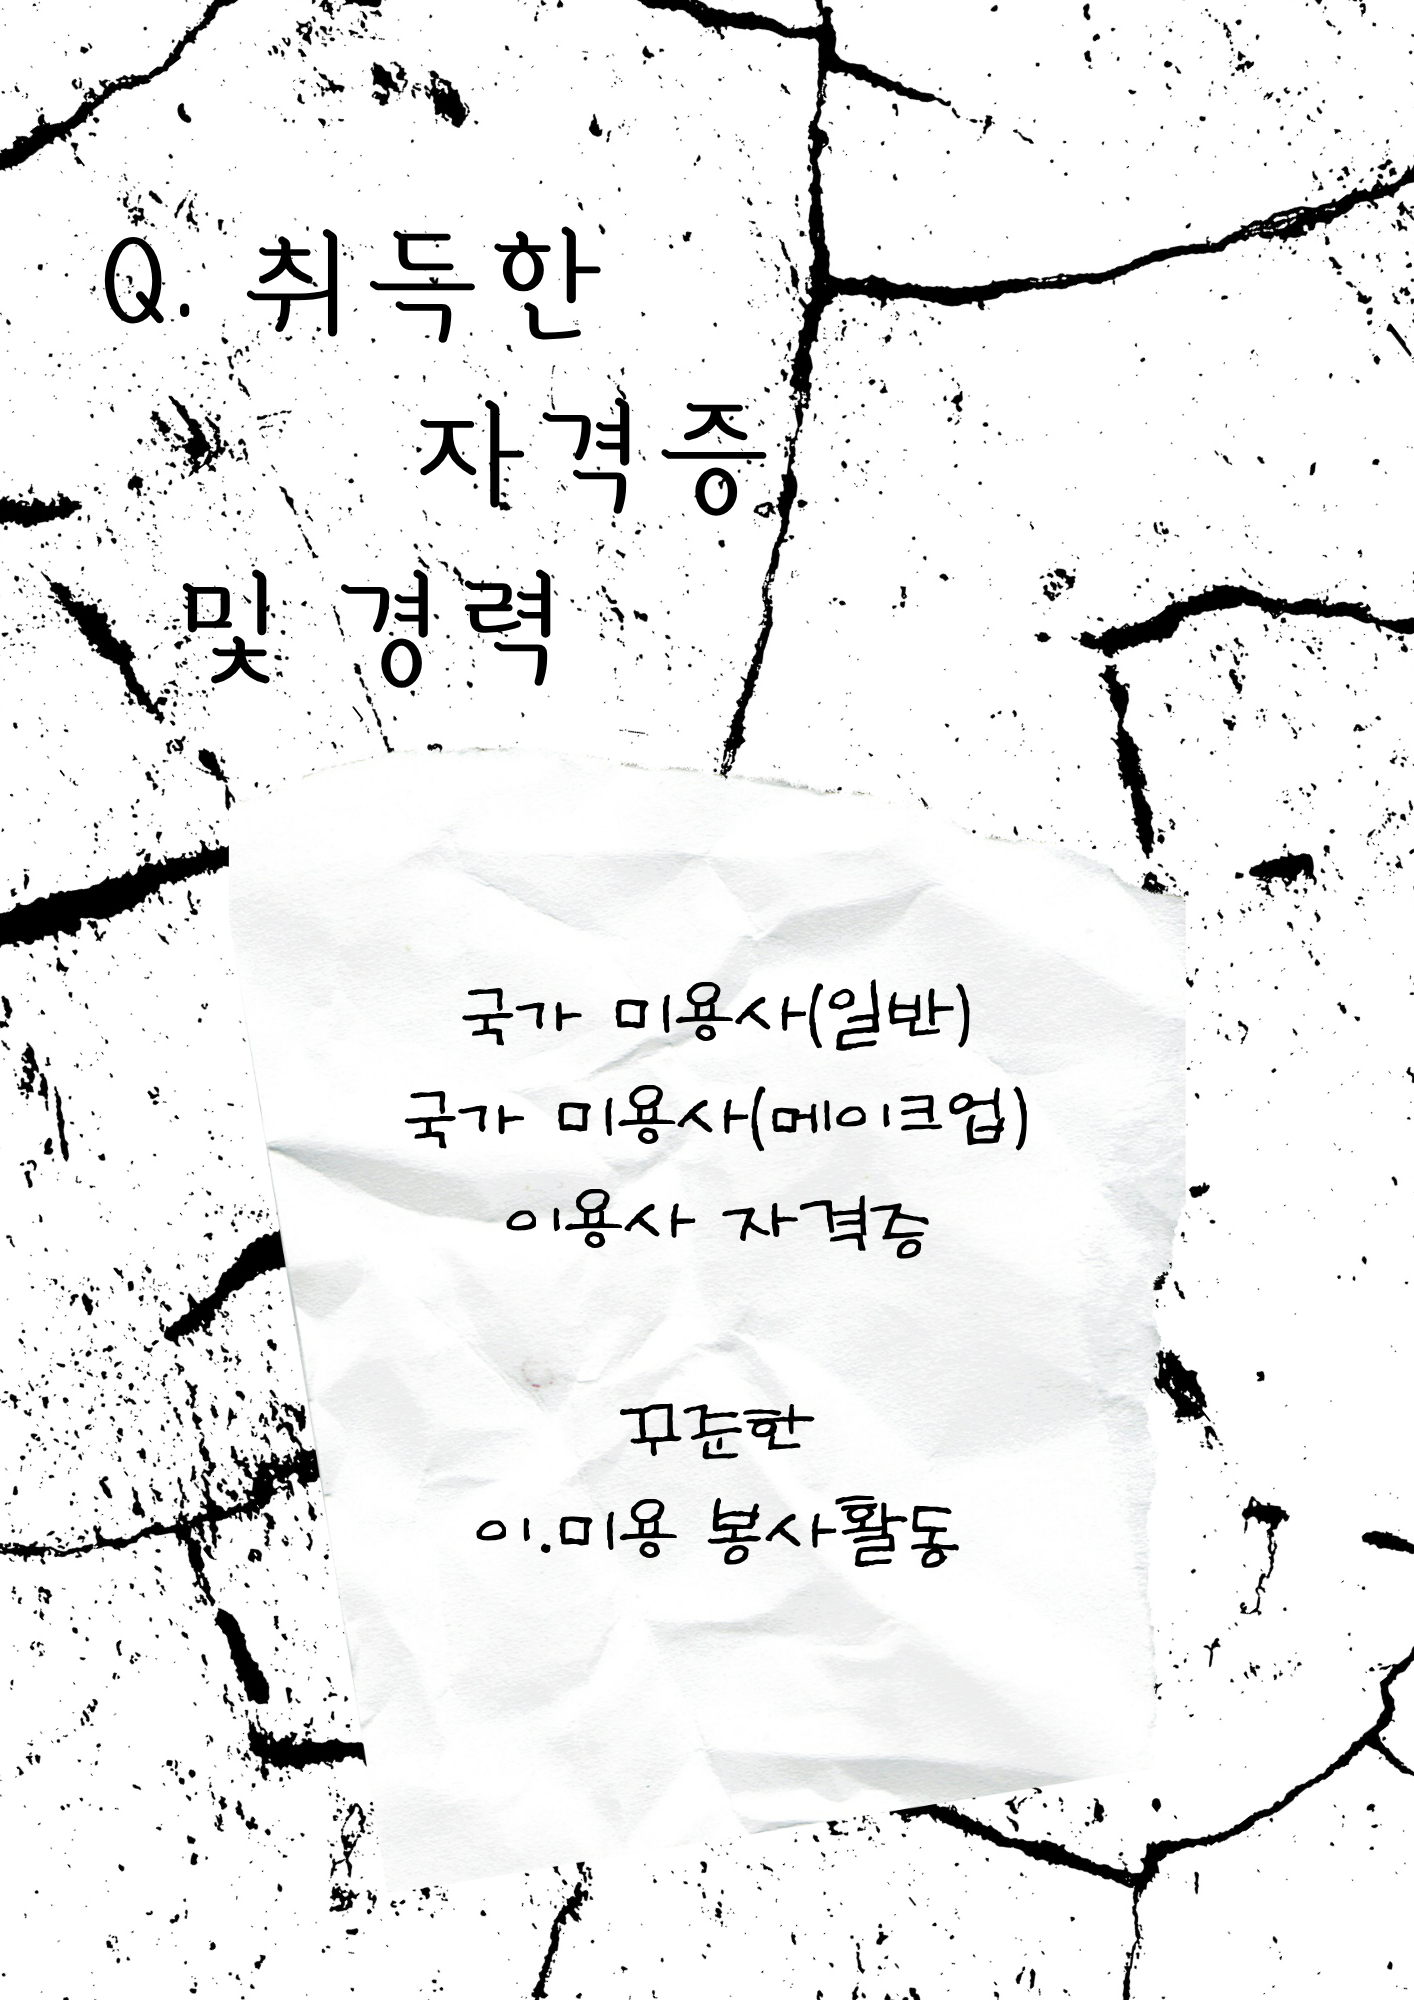 Q. 취득한
자격증
및 경력
국가 미용사(일반)
국가 미용사(메이크업)
이용사 자격증
꾸준한
이.미용 봉사활동